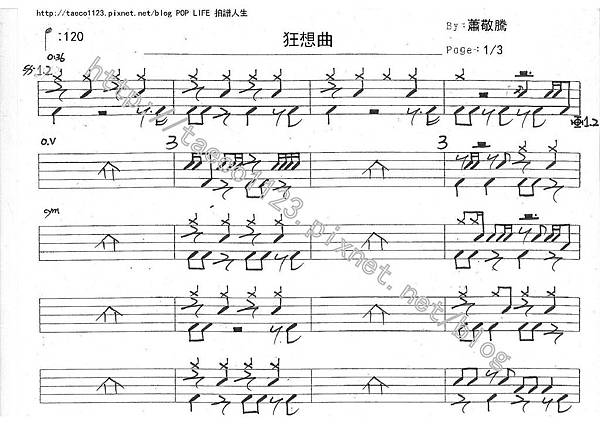 http://taeco1123.pixnet.net/blog POP LIFE 拍譜人生
:120
狂想曲
By:蕭敬騰
Page:1/3
0:36
1.2
1.2
O.V
3
3
cym
http://taeco1123.pixnet.net/blog